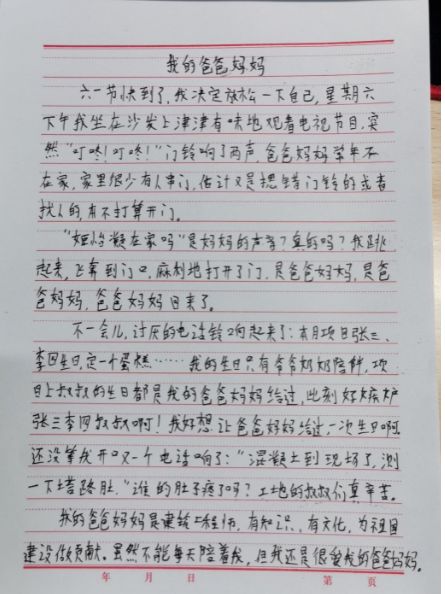 我的爸爸妈妈
六一节快到了,我决定放松一下自己,星期六
下午我坐在沙发上津津有味地观看电视节目,突
然“叮咚!叮咚!”门铃响了两声,爸爸妈妈常年不
在家,家里很少有人串门,估计又是摁错门铃的或者
找人的,我不打算开门。
在家吗”是妈妈的声音?真的吗?我跳
起来,飞奔到门口,麻利地打开了门,是爸爸妈妈,是爸
爸妈妈,爸爸妈妈回来了。
不一会儿,讨厌的电话铃响起来了:本月项目张三、
李四生日,定一个蛋糕……我的生日只有爷爷奶奶陪伴,项
目上叔叔的生日都是我的爸爸妈妈给过,此刻好嫉妒
张三李四叔叔啊!我好想让爸爸妈妈给过一次生日啊
还没等我开口又一个电话响了:“混凝土到现场了,测
一下塌落肚。”谁的肚子疼了吗?工地的叔叔们真辛苦。
我的爸爸妈妈是建筑工程师,有知识、有文化,为祖国
建设做贡献。虽然不能每天陪着我,但我还是很爱我的爸爸妈妈。
年 月 日 第 页